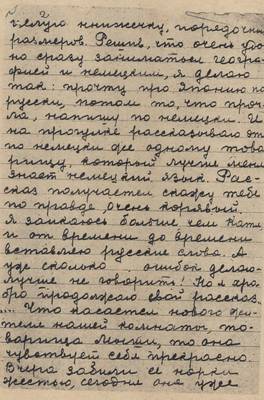 целую книжечку, порядочных
размеров. Решив, что очень удоб
но сразу заниматься геогра-
фией и немецким, я делаю
так: прочту про Японию по
русски, потом то, что проч
ла, напишу по немецки. И
на прогулке рассказываю это
по немецки же одному това
рищу, который лучше меня
знает немецкий язык. Рас-
сказ получается скажу тебе
по правде очень корявый.
Я заикаюсь больше чем Катя
и от времени до времени
вставляю русские слова. А
уже сколько ошибок делаю—
лучше не говорить! Но я хра-
бро продолжаю свой рассказ.
.... Что касается нового жи-
теля нашей комнаты, то-
варища Мыши, то она
чувствует себя прекрасно.
Вчера забили ее норки
жестью, сегодня она уже